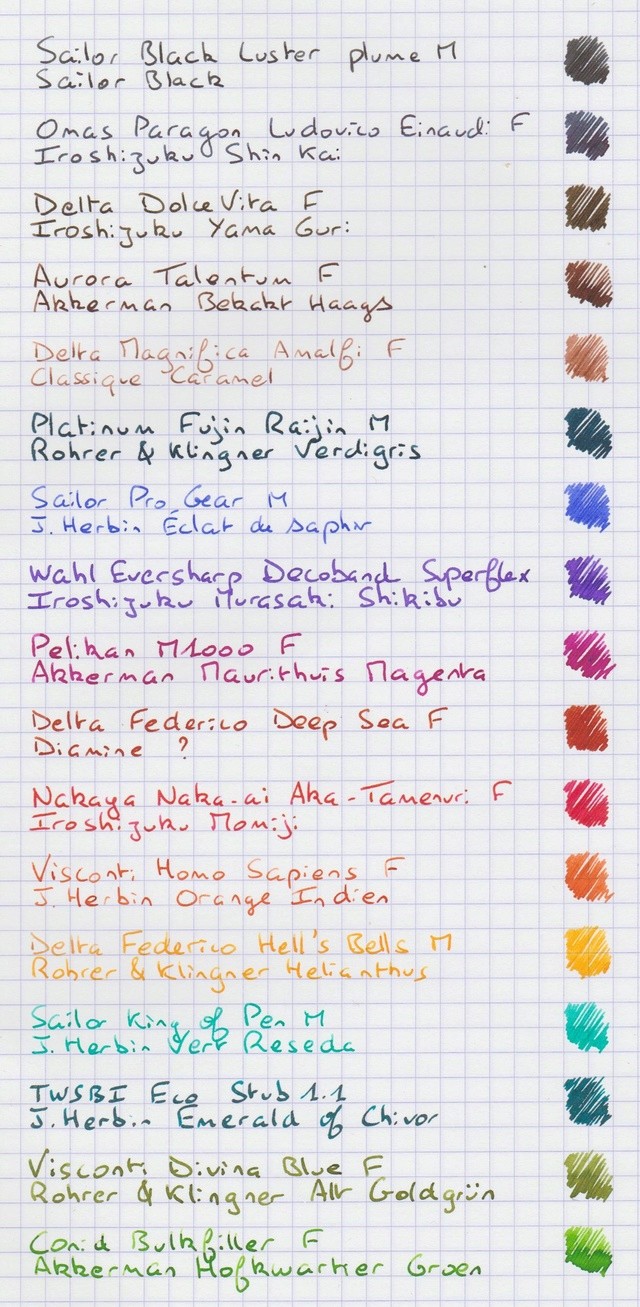 Sailor Black Luster plume M
Sailor Black
Omas Paragon Ludovico Einaudi F
Iroshizuku Shin Kai
Delta DolceVita F
Iroshizuku Yama Guri
Aurora Talentum F
Akkerman Bekakt Haags
Delta Magnifica Amalfi F
Classique Caramel
Platinum Fujin Raijin M
Rohrer & Klingner Verdigris
Sailor Pro Gear M
J. Herbin Éclat de saphir
Wahl Eversharp Decoband Superflex
Iroshizuku Murasaki Shikibu
Pelikan M1000 F
Akkerman Maurithuis Magenta
Delta Federico Deep Sea F
Diamine ?
Nakaya Naka-ai Aka-Tamenuri F
Iroshizuku Momiji
Visconti Homo Sapiens F
J. Herbin Orange Indien
Delta Federico Hell's Bells M
Rohrer & Klingner Helianthus
Sailor King of Pen M
J. Herbin Vert Reseda
TWSBI Eco Stub 1.1
J. Herbin Emerald of Chivor
Visconti Divina Blue F
Rohrer & Klingner Alt Goldgrün
Conid Bulkfiller F
Akkerman Hofkwartier Groen